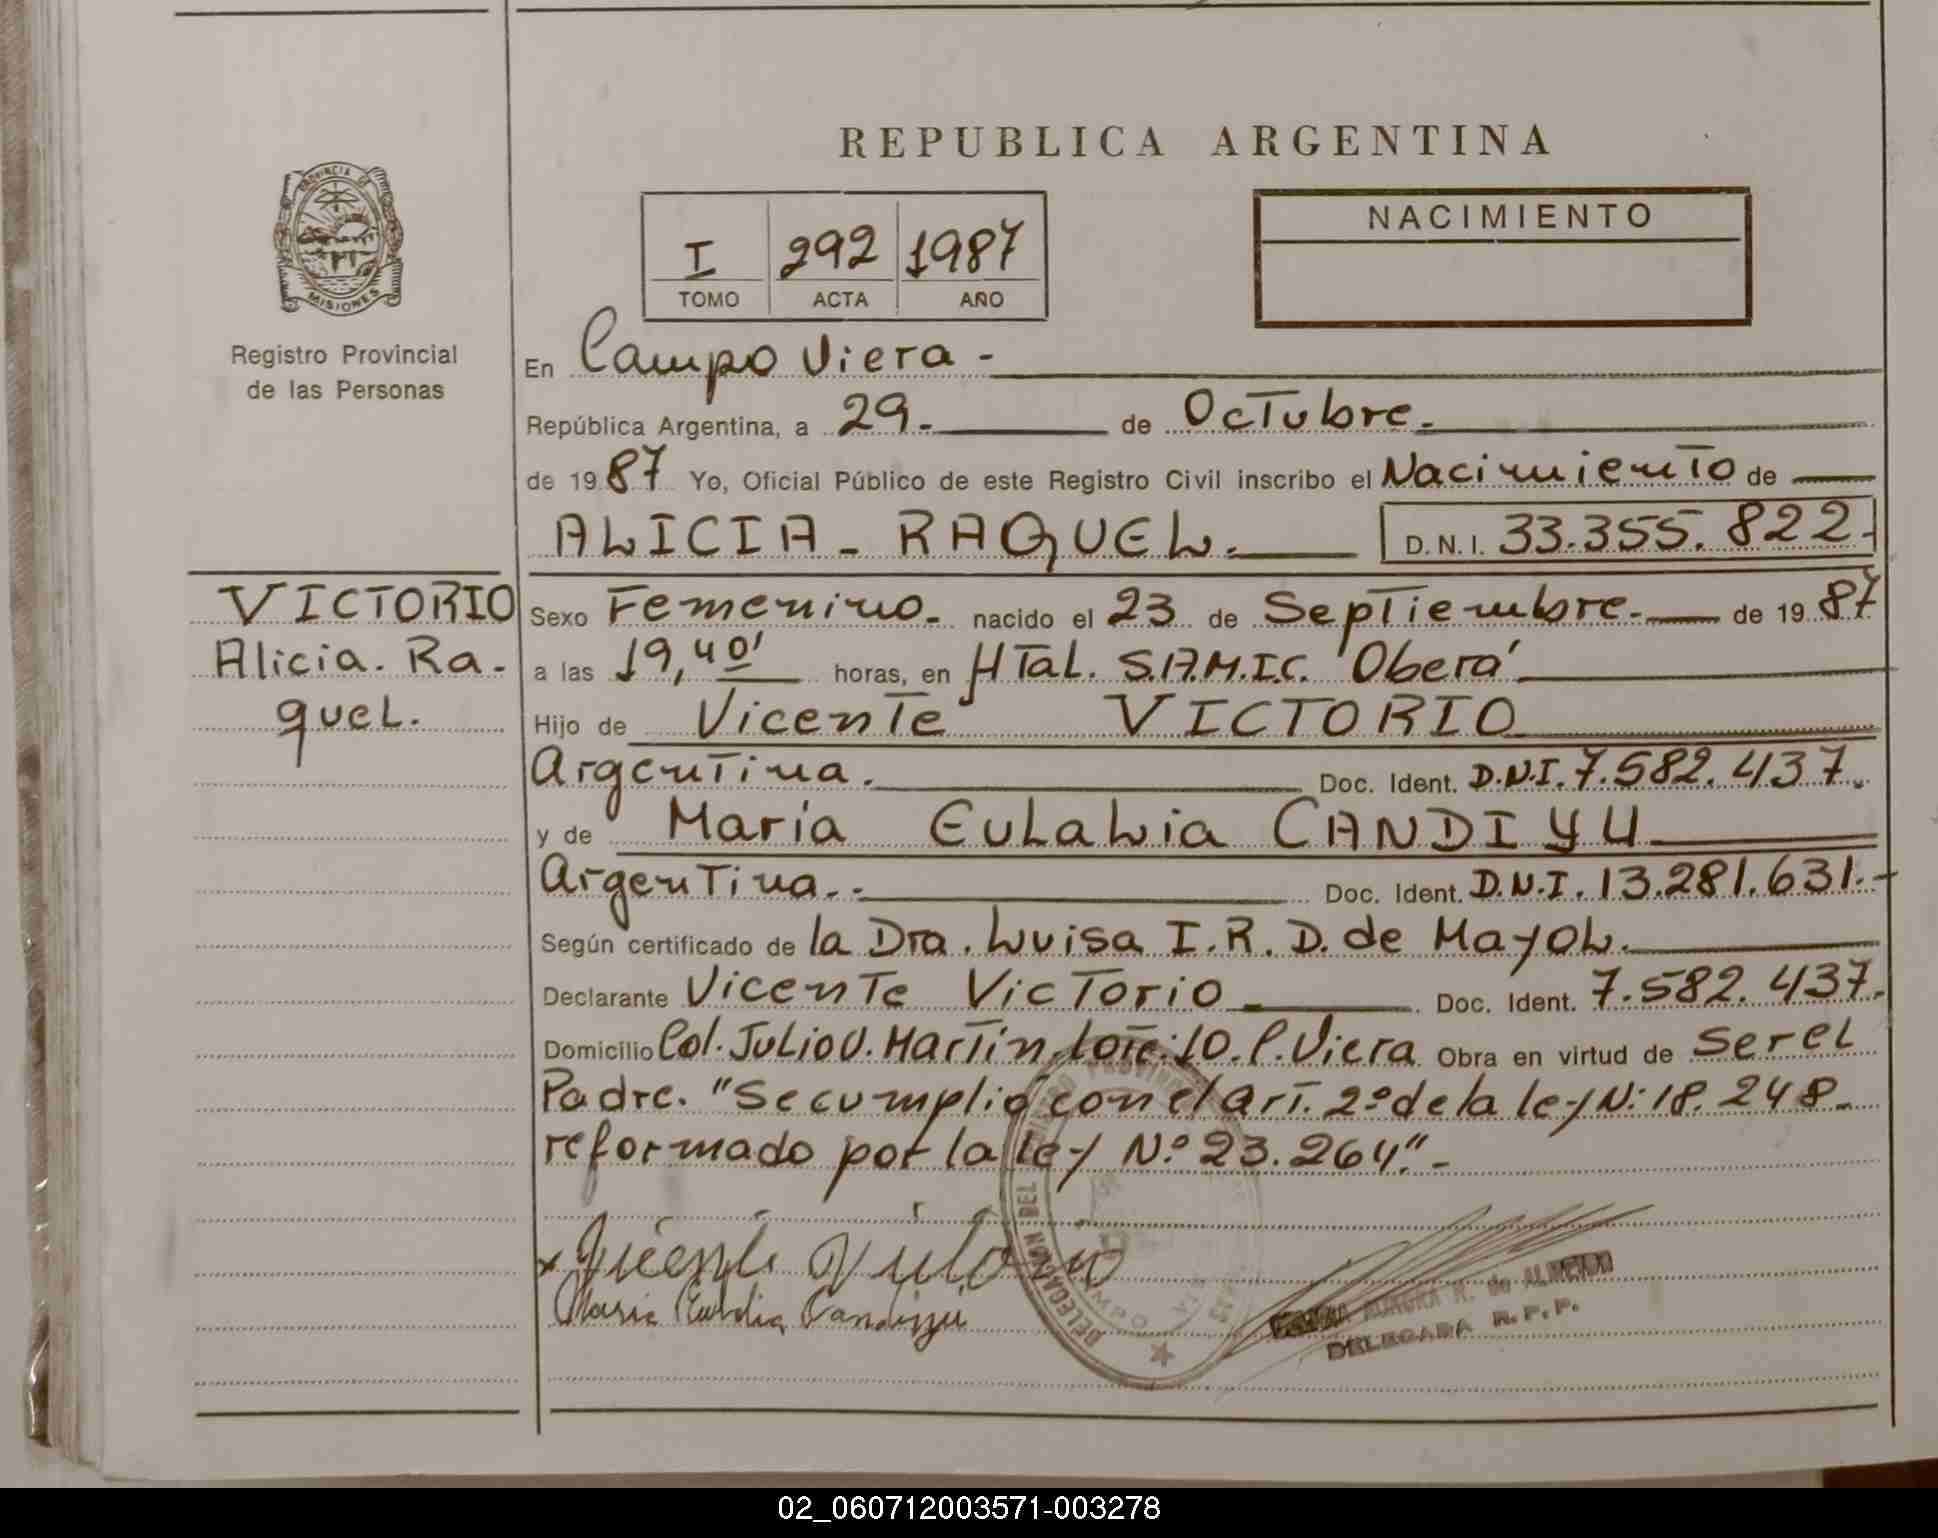 REPUBLICA ARGENTINA
PROVINCIA DE
MISIONES
Registro Provincial
de las Personas
I 292 1987
TOMO ACTA AÑO
NACIMIENTO
En Campo Viera -
República Argentina, a 29.- de Octubre.
de 1987 Yo, Oficial Público de este Registro Civil inscribo el Nacimiento de
ALICIA - RAQUEL. D.N.I. 33.355.822.-
VICTORIO
Alicia. Ra-
quel.
Sexo Femenino.- nacido el 23 de Septiembre.- de 1987
a las 19,40' horas, en HTal. S.A.M.I.C. Oberá
Hijo de Vicente VICTORIO
Argentina. Doc. Ident. D.N.I. 7.582.437.
y de María Eulalia CANDIYU
Argentina.- Doc. Ident. D.N.I. 13.281.631.-
Según certificado de la Dra. Luisa I. R. D. de Mayol.
Declarante Vicente Victorio Doc. Ident. 7.582.437.
Domicilio Col. Julio U. Martin, Lote: 10. C. Viera Obra en virtud de ser el
Padre. "Se cumplió con el Art. 2º de la ley N: 18.248-
reformado por la ley Nº 23.264."-
x Vicente Victorio
Maria Eulalia Candiyu
DELEGACION DEL REGISTRO PROVINCIAL
CAMPO VIERA
AURORA R. de ALMEIDA
DELEGADA R.P.P.
02_060712003571-003278